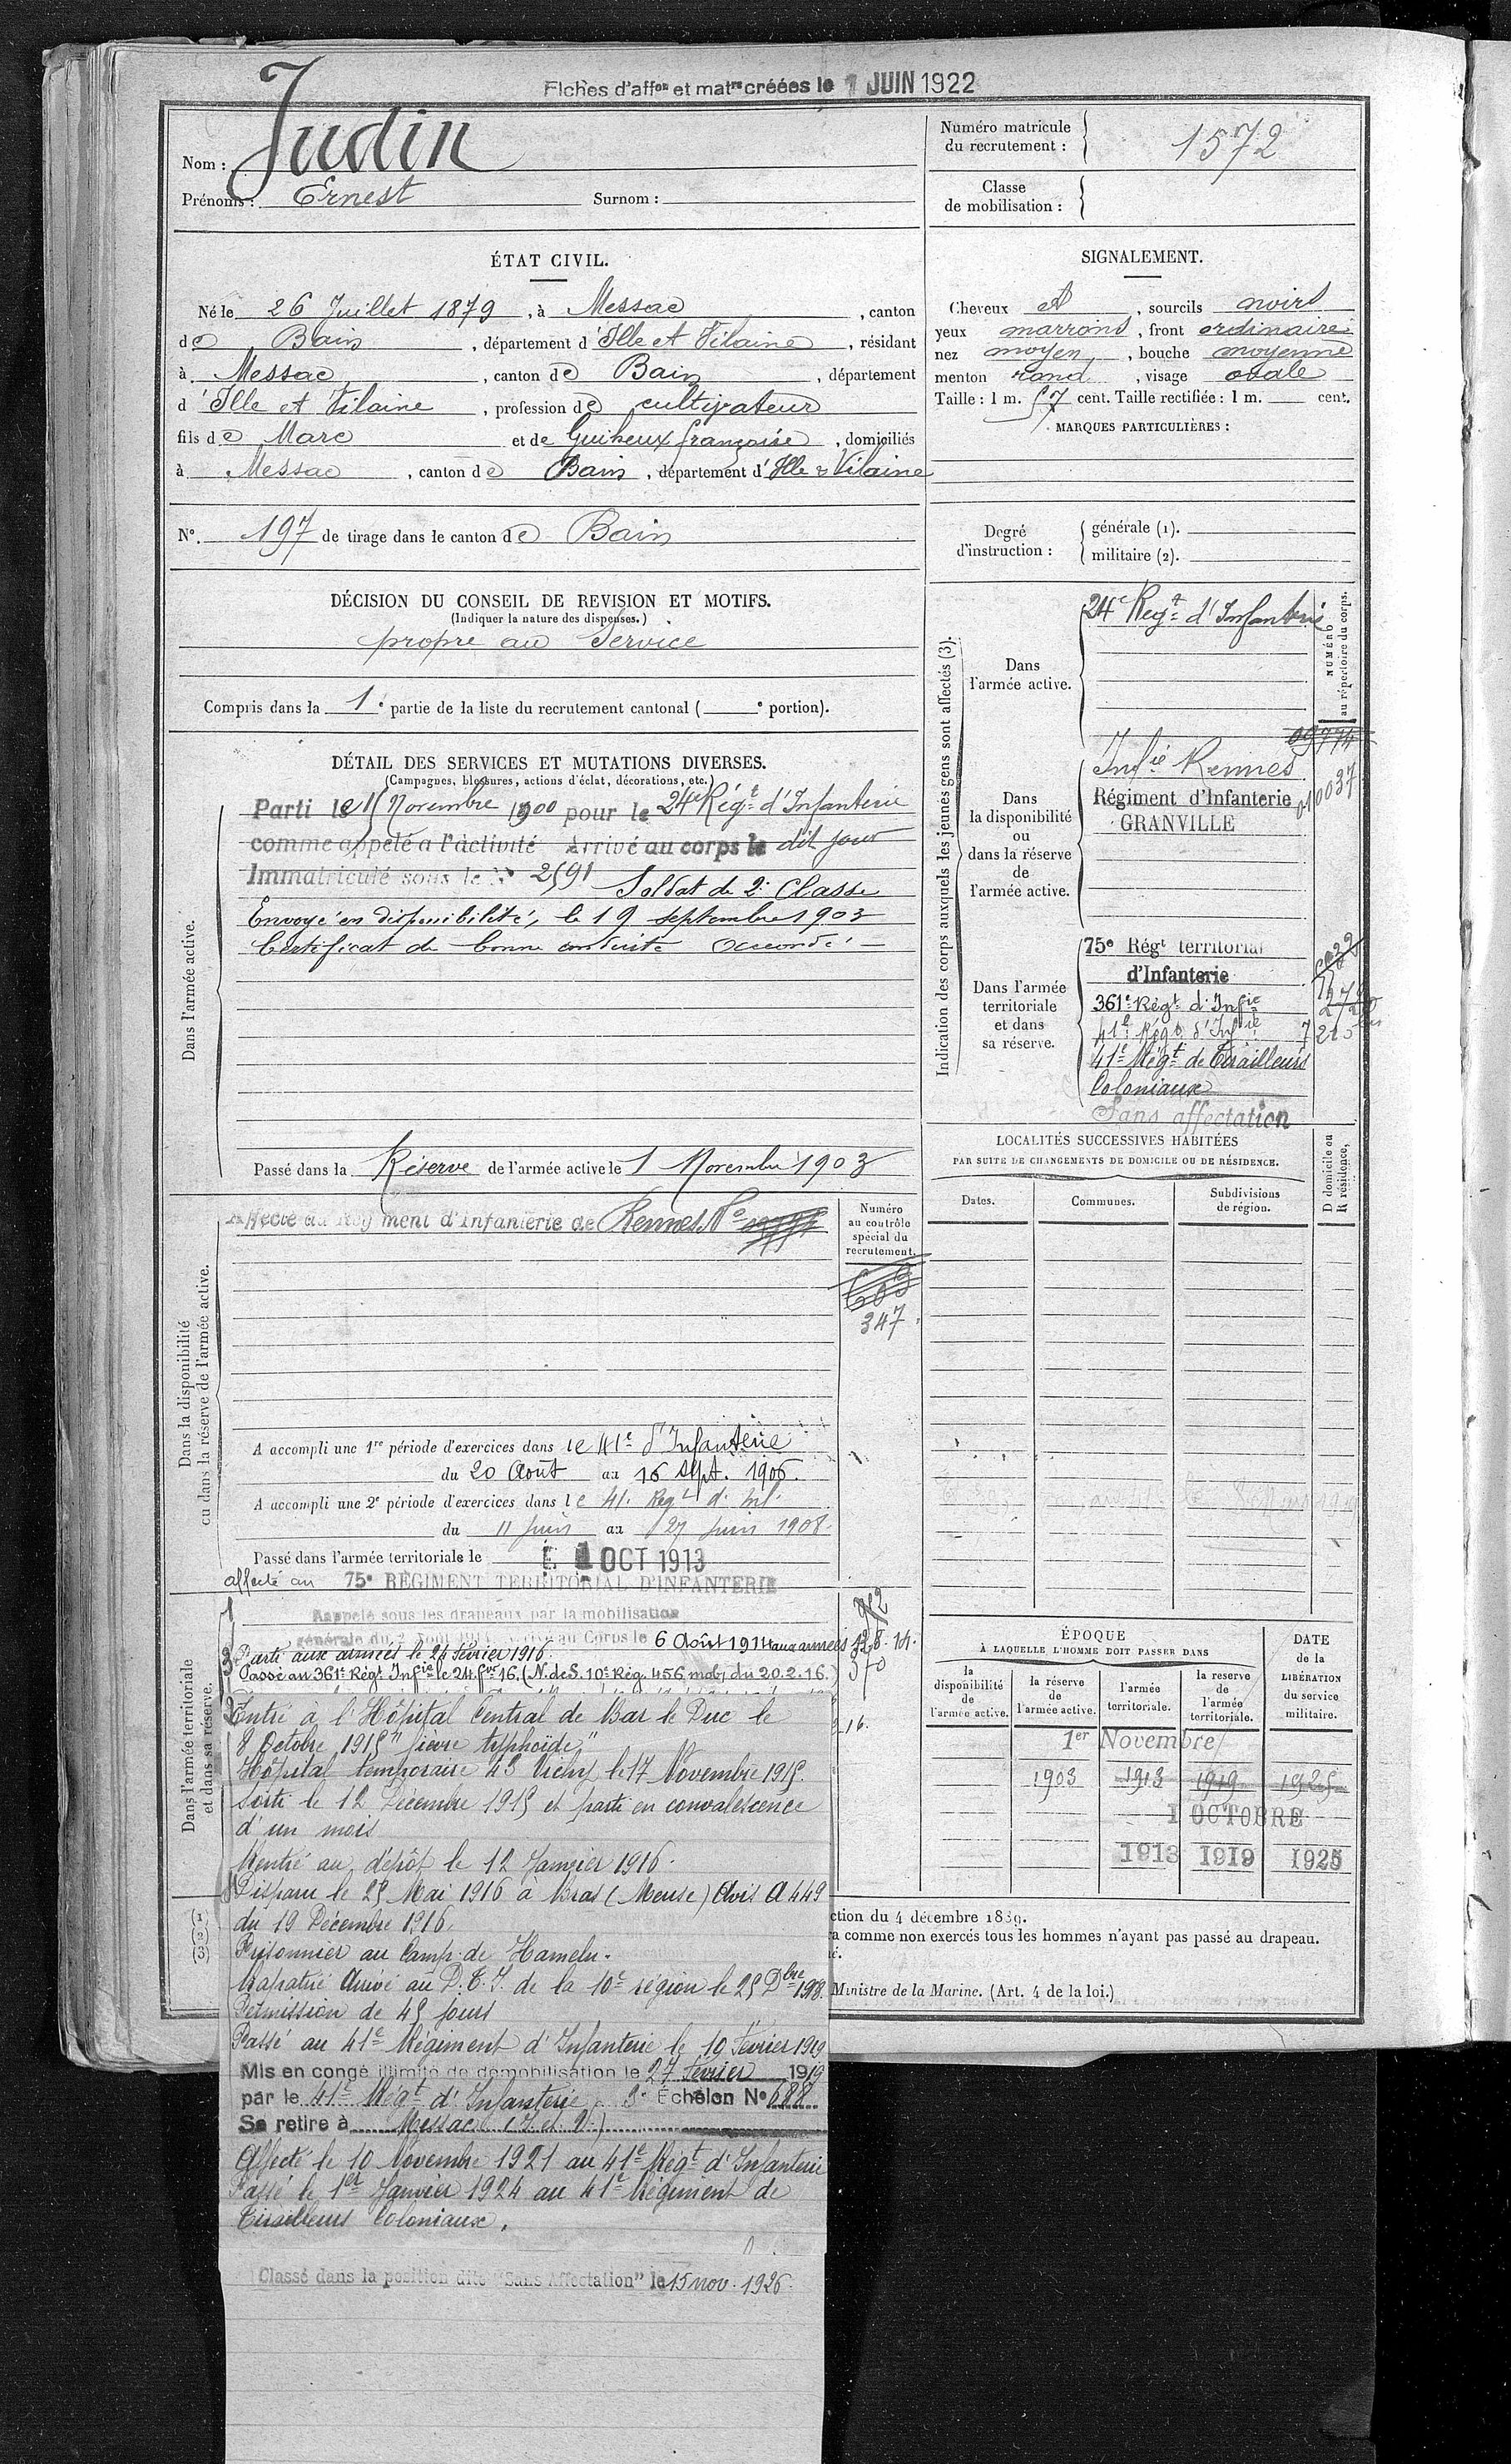 Fiches d'affon et matre créées le 1 JUIN 1922
Nom : Judin
Prénoms : Ernest Surnom :
Numéro matricule du recrutement : 1572
Classe de mobilisation :
ÉTAT CIVIL.
Né le 26 Juillet 1879, à Messac, canton
de Bain, département d'Ille et Vilaine, résidant
à Messac, canton de Bain, département
d'Ille et Vilaine, profession de cultivateur
fils de Marc et de Guiheux françoise, domiciliés
à Messac, canton de Bain, département d'Ille & Vilaine
N°. 197 de tirage dans le canton de Bain
SIGNALEMENT.
Cheveux et, sourcils noirs
yeux marrons, front ordinaire
nez moyen, bouche moyenne
menton rond, visage ovale
Taille : 1 m. 57 cent. Taille rectifiée : 1 m. cent.
MARQUES PARTICULIÈRES :
Degré d'instruction :
générale (1).
militaire (2).
DÉCISION DU CONSEIL DE REVISION ET MOTIFS.
(Indiquer la nature des dispenses.)
propre au Service
Compris dans la 1e partie de la liste du recrutement cantonal ( e portion).
DÉTAIL DES SERVICES ET MUTATIONS DIVERSES.
(Campagnes, blessures, actions d'éclat, décorations, etc.)
Dans l'armée active.
Parti le 15 Novembre 1900 pour le 24e Régt d'Infanterie
comme appelé à l'activité Arrivé au corps le dit jour
Immatriculé sous le N° 2591 Soldat de 2e Classe
Envoyé en disponibilité, le 19 septembre 1903
Certificat de bonne conduite accordé
Passé dans la Réserve de l'armée active le 1 Novembre 1903
Dans la disponibilité
ou dans la réserve de l'armée active.
Affecté au Régiment d'Infanterie de Rennes N°
Numéro
au contrôle
spécial du
recrutement.
609
347
A accompli une 1re période d'exercices dans le 41e d'Infanterie
du 20 Août au 16 Sept. 1906.
A accompli une 2e période d'exercices dans le 41. Regt d'Inf.
du 11 Juin au 27 Juin 1908.
Passé dans l'armée territoriale le 1 OCT 1913
affecté au 75e RÉGIMENT TERRITORIAL D'INFANTERIE
Dans l'armée territoriale
et dans sa réserve.
Rappelé sous les drapeaux par la mobilisation
générale du 2 Août 1914 Arrivé au Corps le 6 Août 1914 aux armées 12.8.14.
Parti aux armées le 24 février 1916.
Passé au 361e Régt Infie le 24 fer 16. (N. de S. 10e Rég. 456 mob, du 20.2.16.)
Entré à l'Hôpital Central de Bar le Duc le
8 Octobre 1915 "fièvre typhoïde"
Hôpital temporaire 43 Vichy le 17 Novembre 1915.
Sorti le 12 Décembre 1915 et parti en convalescence
d'un mois
Rentré au dépôt le 12 Janvier 1916.
Disparu le 25 Mai 1916 à Bras (Meuse) Avis A 449
du 19 Décembre 1916.
Prisonnier au Camp de Hameln.
Rapatrié Arrivé au D.T.I. de la 10e région le 25 Dbre 1918.
Permission de 45 jours
Passé au 41e Régiment d'Infanterie le 10 Février 1919
Mis en congé illimité de démobilisation le 27 Février 1919
par le 41e Régt d'Infanterie 3e Échelon N° 688
Se retire à Messac (I. et V.)
Affecté le 10 Novembre 1921 au 41e Régt d'Infanterie
Passé le 1er Janvier 1924 au 41e Régiment de
Tirailleurs Coloniaux.
Classé dans la position dite "Sans Affectation" le 15 nov. 1926.
Indication des corps auxquels les jeunes gens sont affectés (3).
NUMÉRO
au répertoire du corps.
Dans
l'armée active.
24e Regt d'Infanterie
Dans
la disponibilité
ou
dans la réserve
de
l'armée active.
Infie Rennes
Régiment d'Infanterie
GRANVILLE
010037
Dans l'armée
territoriale
et dans
sa réserve.
75e Régt territorial
d'Infanterie
361e Régt d'Infie
41e Régt d'Infie
41e Régt de Tirailleurs
Coloniaux
Sans affectation
LOCALITÉS SUCCESSIVES HABITÉES
PAR SUITE DE CHANGEMENTS DE DOMICILE OU DE RÉSIDENCE.
Dates. Communes. Subdivisions de région.
D domicile ou
R résidence.
ÉPOQUE
À LAQUELLE L'HOMME DOIT PASSER DANS
la disponibilité de l'armée active.
la réserve de l'armée active.
l'armée territoriale.
la reserve de l'armée territoriale.
DATE de la LIBÉRATION du service militaire.
1er Novembre
1903 1913 1919 1925
1 OCTOBRE
1913 1919 1925
(1)
(2)
(3)
ction du 4 décembre 1889.
a comme non exercés tous les hommes n'ayant pas passé au drapeau.
Ministre de la Marine. (Art. 4 de la loi.)